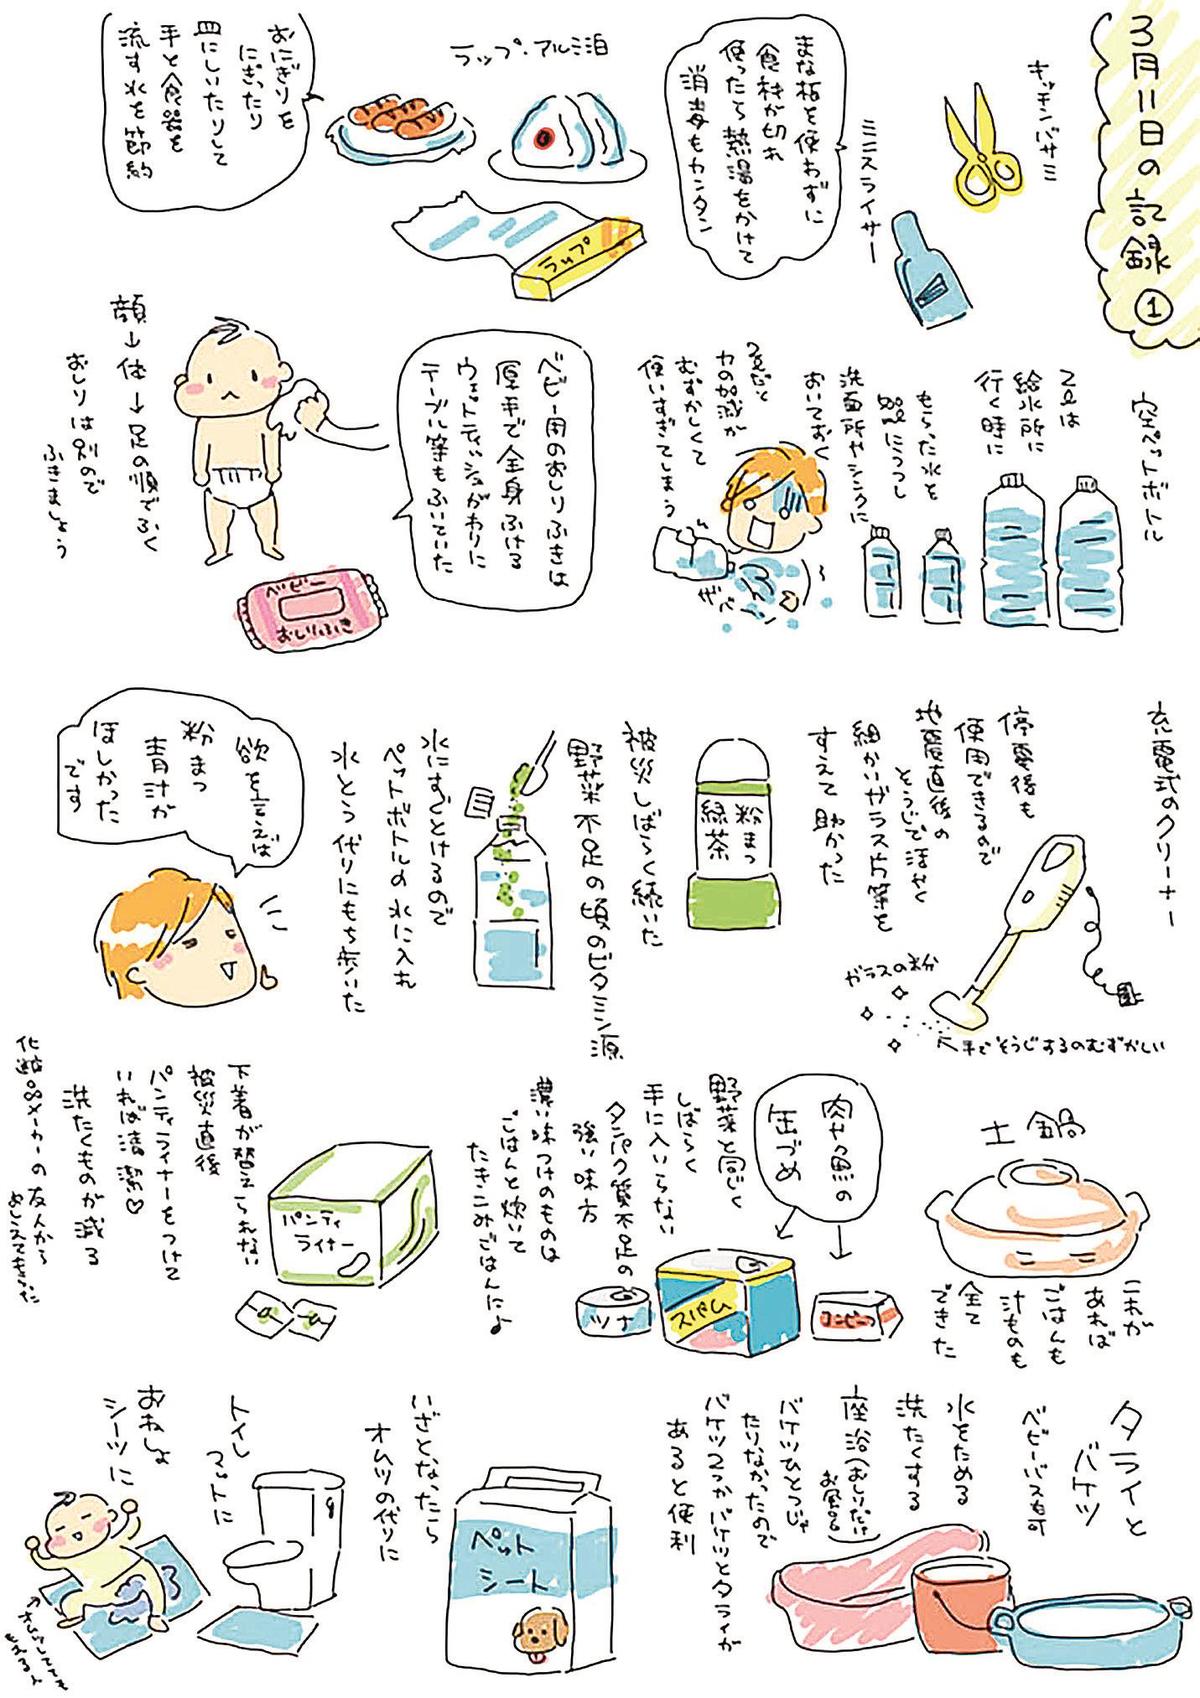 3月11日の記録①
キッチンバサミ
ミニスライサー
まな板を使わずに
食材が切れ
使ったら熱湯をかけて
消毒もカンタン
ラップ・アルミ泊
ラップ
おにぎりを
にぎったり
皿にしいたりして
手と食器を
流す水を節約
空ペットボトル
2ℓは
給水所に
行く時に
もらった水を
500mlにうつし
洗面所やシンクに
おいておく
2ℓだと
力の加減が
むずかしくて
使いすぎてしまう
ベビー用のおしりふきは
厚手で全身ふける
ウェットティッシュがわりに
テーブル等もふいていた
ベビー
おしりふき
顔→体→足の順でふく
おしりは別ので
ふきましょう
充電式のクリーナー
停電後も
使用できるので
地震直後の
そうじで活やく
細かいガラス片等を
すえて助かった
ガラスの粉
手でそうじするのむずかしい
粉まつ
緑茶
被災しばらく続いた
野菜不足の頃のビタミン源
水にすぐとけるので
ペットボトルの水に入れ
水とう代りにもち歩いた
欲を言えば
粉まつ
青汁が
ほしかった
です
土鍋
これが
あれば
ごはんも
汁ものも
全て
できた
肉や魚の
缶づめ
ツナ
スパム
コンビーフ
野菜と同じく
しばらく
手に入いらない
タンパク質不足の
強い味方
濃い味つけのものは
ごはんと炊いて
たきこみごはんに♪
パンティ
ライナー
下着が替えられない
被災直後
パンティライナーをつけて
いれば清潔♡
洗たくものが減る
化粧品メーカーの友人から
おしえてもらった
タライと
バケツ
ベビーバスも可
水をためる
洗たくする
座浴(おしりだけ
お風呂)
バケツひとつじゃ
たりなかったので
バケツ2つかバケツとタライが
あると便利
ペット
シート
いざとなったら
オムツの代りに
トイレ
マットに
おねしょ
シーツに